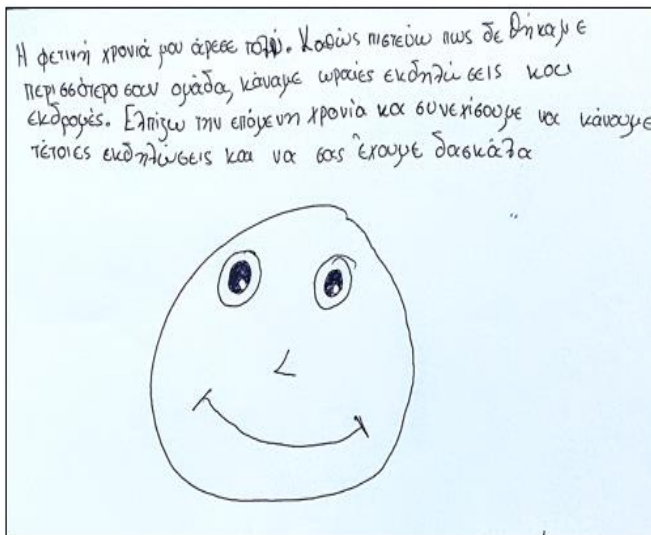 Η φετινή χρονιά μου άρεσε πολύ. Καθώς πιστεύω πως δε θήκαμε
περισσότερο σαν ομάδα, κάναμε ωραίες εκδηλώσεις και
εκδρομές. Ελπίζω την επόμενη χρονία κα συνεχίσουμε να κάνουμε
τέτοιες εκδηλώσεις και να σας έχουμε δασκάλα